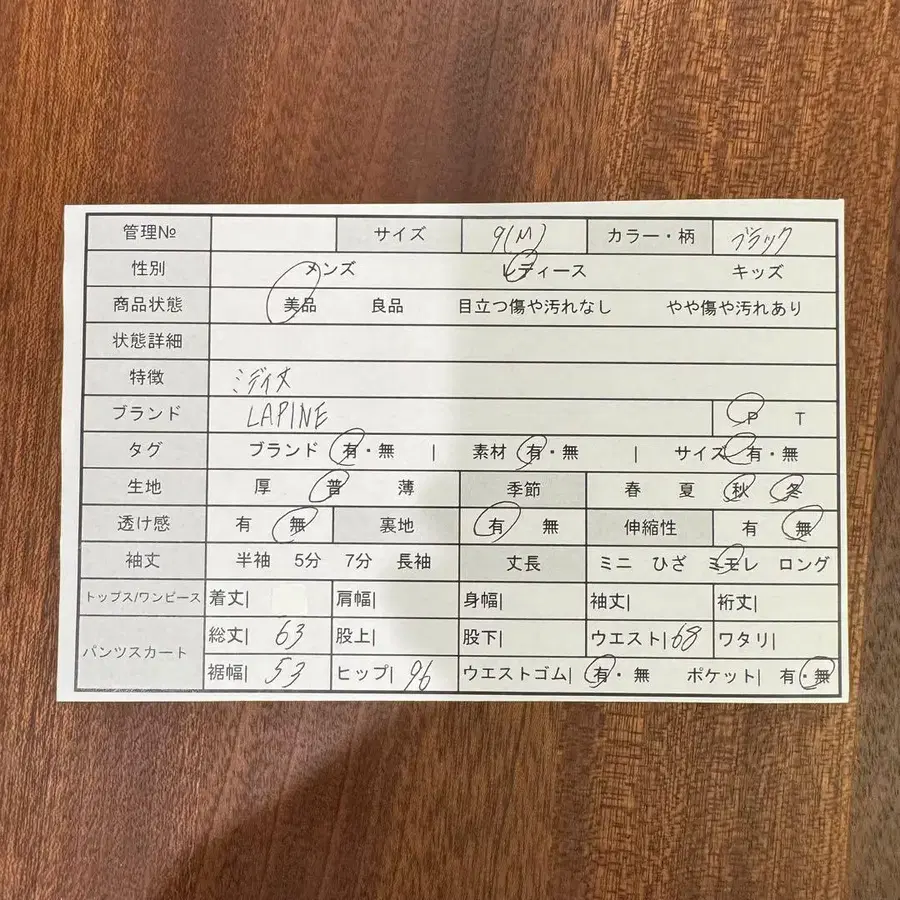 管理№ サイズ 9(M) カラー・柄 ブラック
性別 メンズ レディース キッズ
商品状態 美品 良品 目立つ傷や汚れなし やや傷や汚れあり
状態詳細
特徴 ミディ丈
ブランド LAPINE P T
タグ ブランド 有・無 | 素材 有・無 | サイズ 有・無
生地 厚 普 薄 季節 春 夏 秋 冬
透け感 有 無 裏地 有 無 伸縮性 有 無
袖丈 半袖 5分 7分 長袖 丈長 ミニ ひざ ミモレ ロング
トップス/ワンピース 着丈| 肩幅| 身幅| 袖丈| 裄丈|
パンツスカート 総丈| 63 股上| 股下| ウエスト| 68 ワタリ|
裾幅| 53 ヒップ| 96 ウエストゴム| 有・無 ポケット| 有・無